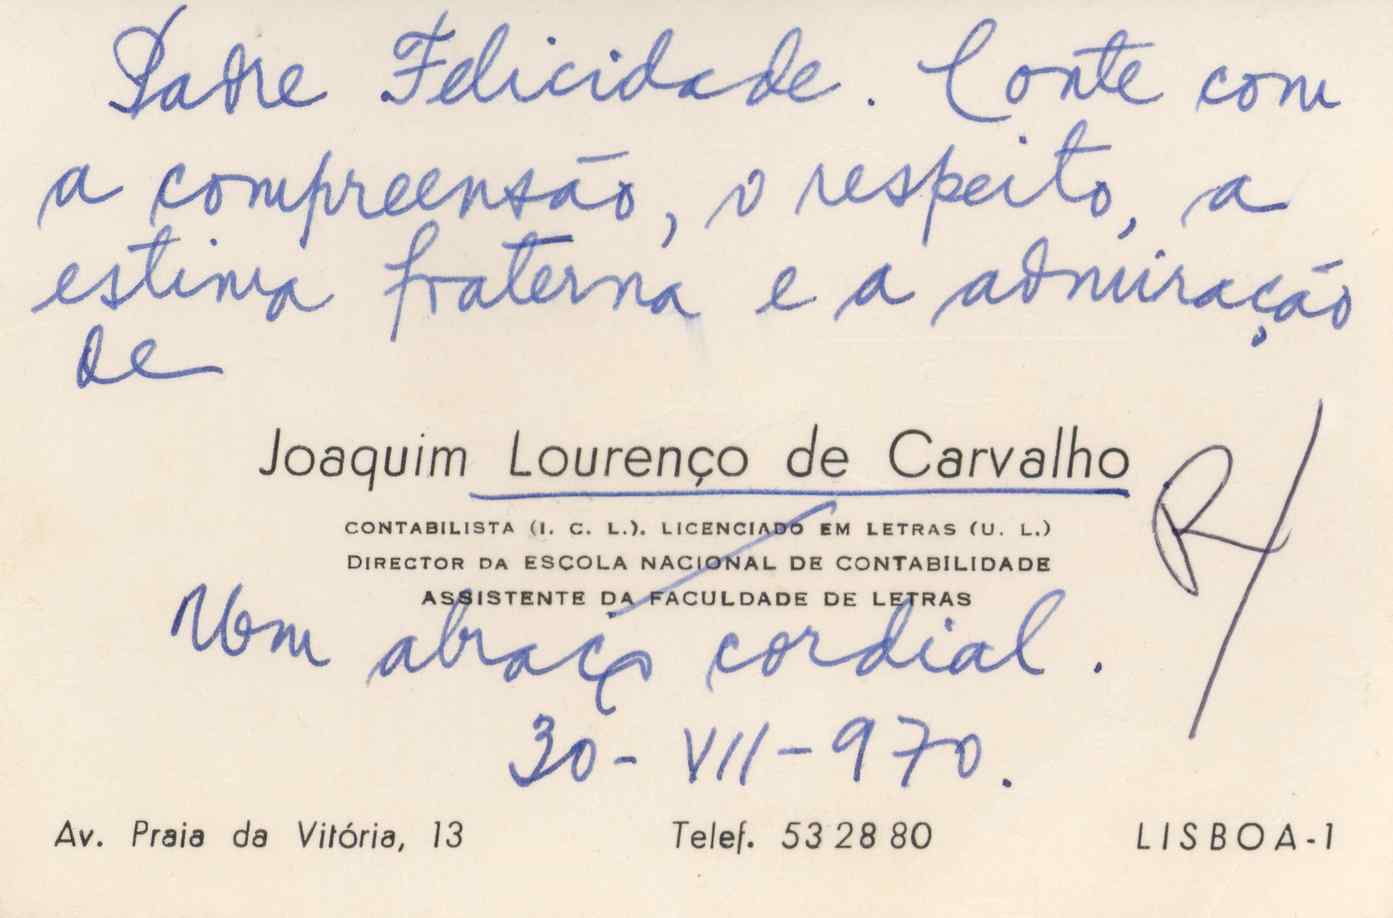 Padre Felicidade. Conte com
a compreensão, o respeito, a
estima fraterna e a admiração
de
Joaquim Lourenço de Carvalho
CONTABILISTA (I. C. L.). LICENCIADO EM LETRAS (U. L.)
DIRECTOR DA ESCOLA NACIONAL DE CONTABILIDADE
ASSISTENTE DA FACULDADE DE LETRAS
Um abraço cordial.
30-VII-970.
Av. Praia da Vitória, 13 Telef. 53 28 80 LISBOA-1